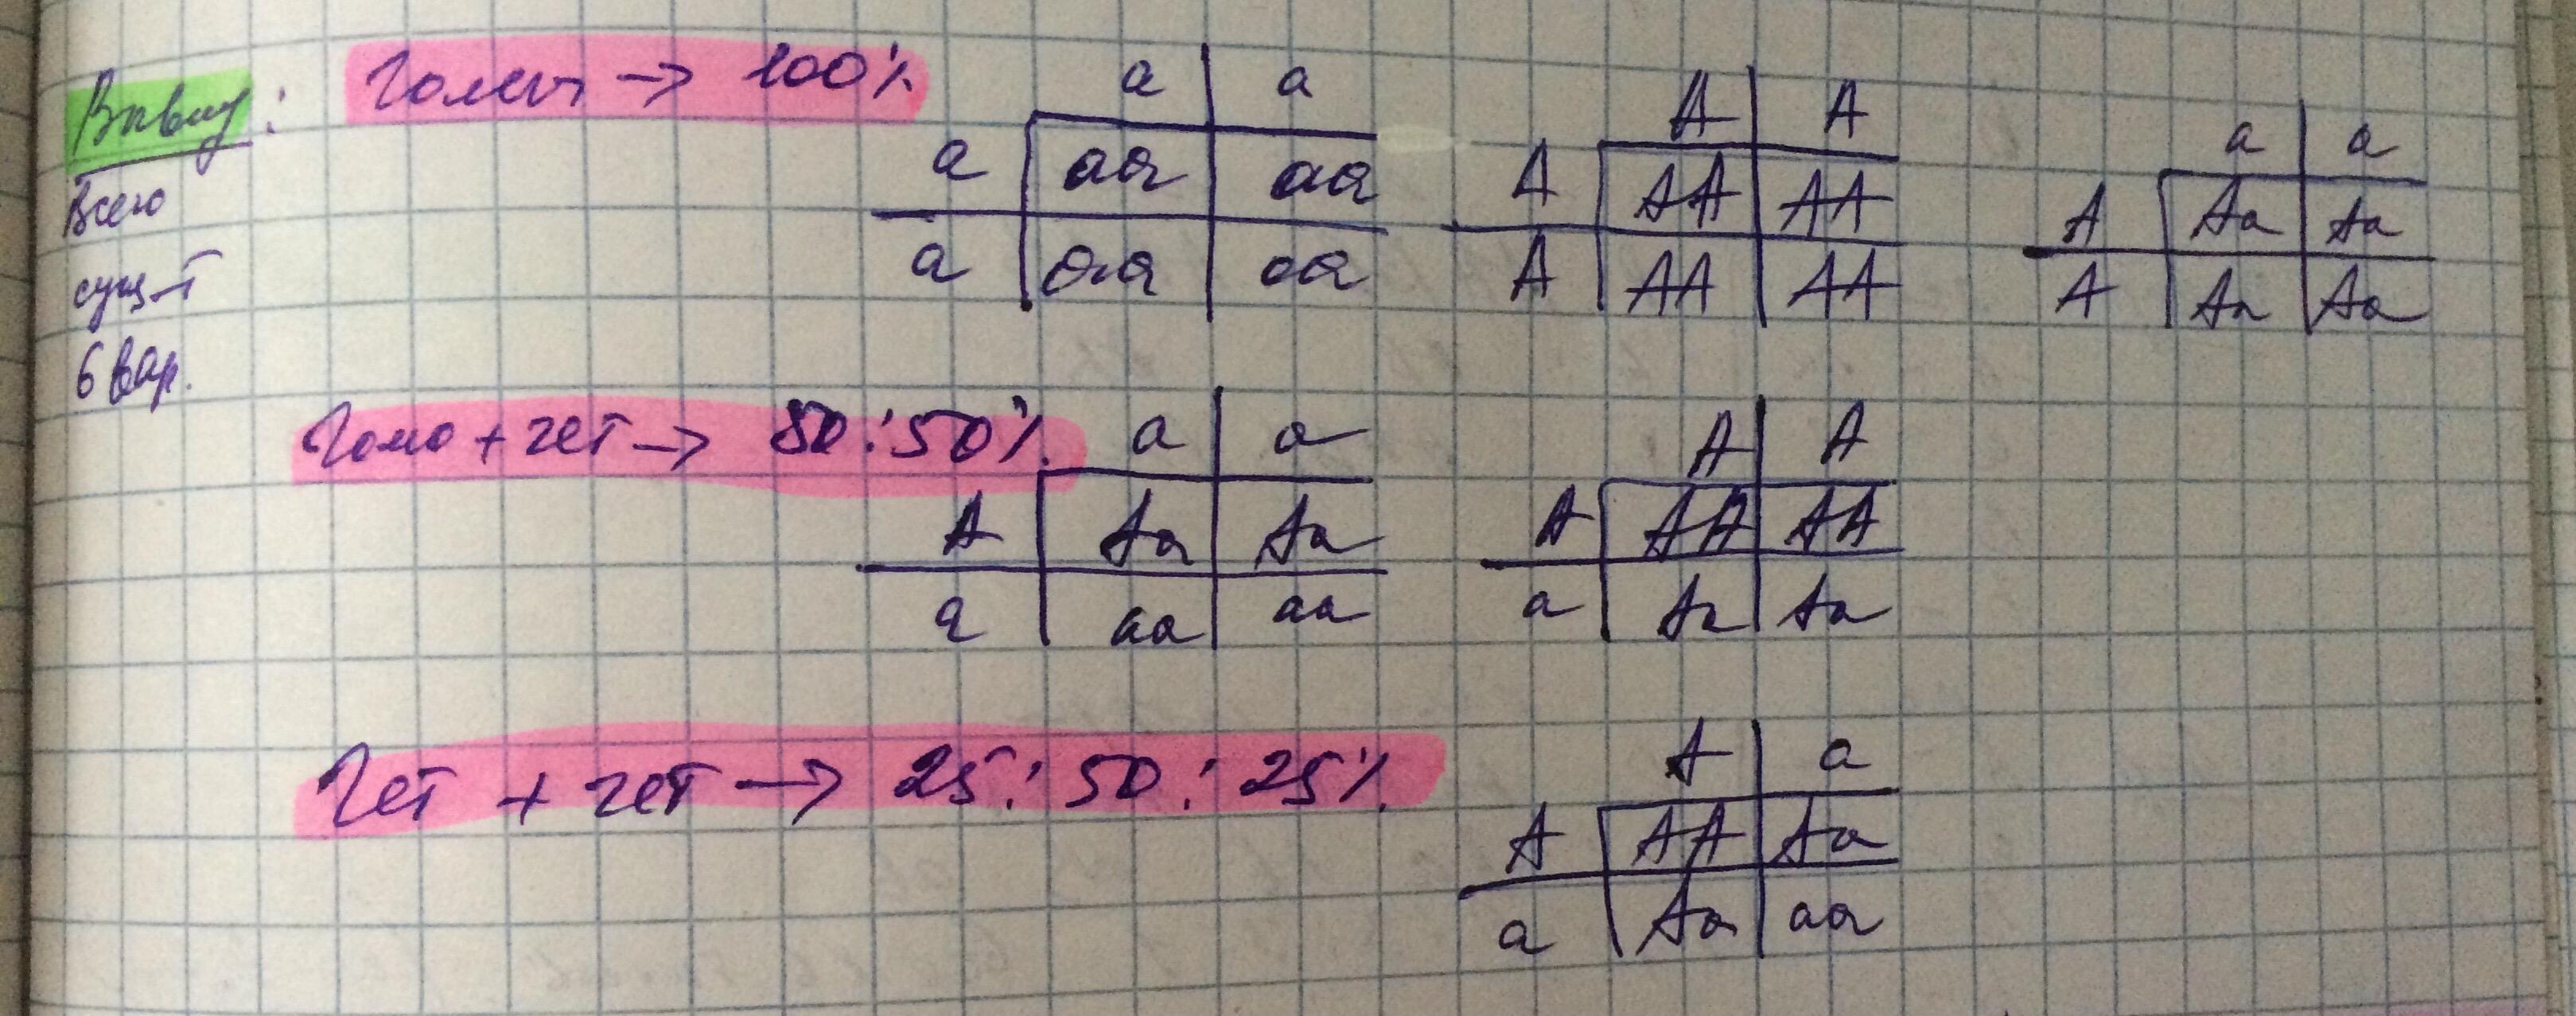 Вывод: Гомоз → 100%
Всего
сущ-т
6 вар.
a a
a aa aa
a aa aa
A A
A AA AA
A AA AA
a a
A Aa Aa
A Aa Aa
Гомо + гет → 50:50%
a a
A Aa Aa
a aa aa
A A
A AA AA
a Aa Aa
Гет + гет → 25:50:25%
A a
A AA Aa
a Aa aa